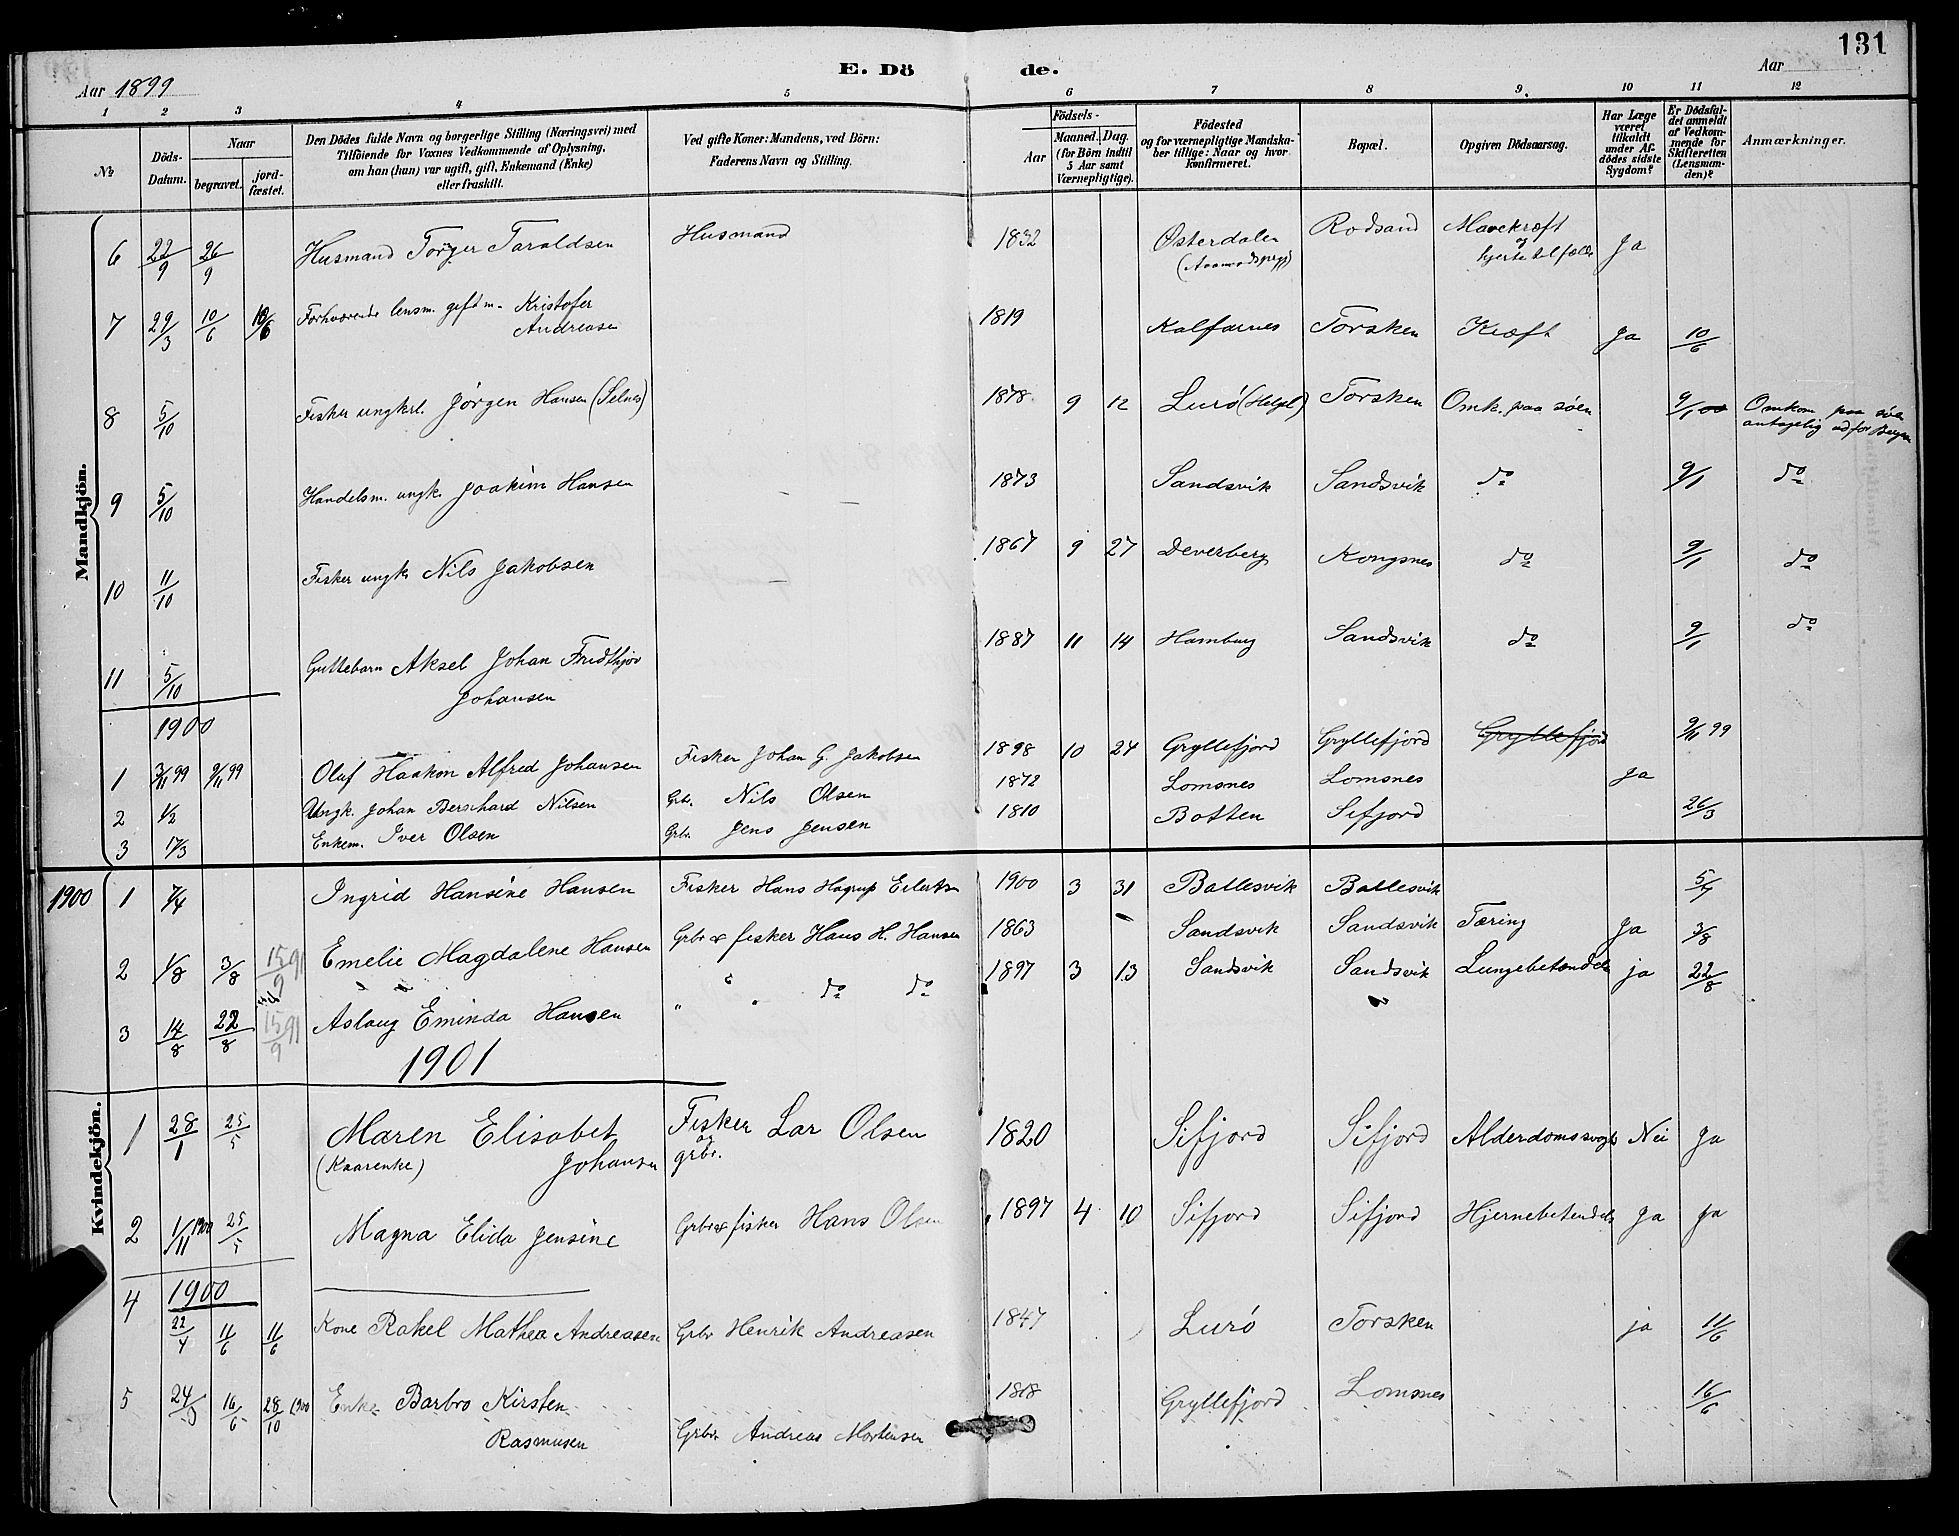 131
E. Dö de.
Aar 1899
Aar
1 2 3 4 5 6 7 8 9. 10 11 12
№
Döds-Datum.
Naar
begravet.
jord-fæstet.
Den Dödes fulde Navn og borgerlige Stilling (Næringsvei) med
Tilföiende for Voxnes Vedkommende af Oplysning,
om han (hun) var ugift, gift, Enkemand (Enke)
eller fraskilt.
Ved gifte Koner: Mandens, ved Börn:
Faderens Navn og Stilling.
Födsels-
Aar
Maaned. Dag.
(for Börn indtil
5 Aar samt
Værnepligtige).
Födested
og for værnepligtige Mandska-
ber tillige: Naar og hvor
konfirmeret.
Bopæl.
Opgiven Dödsaarsag.
Har Læge
været
tilkaldt
under Af-
dödes sidste
Sygdom?
Er Dödsfal-
det anmeldt
af Vedkom-
mende for
Skifteretten
(Lensman-
den)?
Anmærkninger.
Mandkjön.
6 22/9 26/9 Husmand Torger Taraldsen Husmand 1832 Österdalen Rodsand Mavekræft og hjertetilfælde Ja
7 29/3 10/6 10/6 Forhværende lensm. gift m. Kristofer Andreasen 1819 Kalfarnes Torsken Kræft Ja 10/6
8 5/10 Fisker ungkrl. Jørgen Hansen (Selnes) 1878 9 12 Lurö (Helgel) Torsken Omk. paa söen 9/1 00 Omkom paa söen
antagelig ud for Bergen
9 5/10 Handelsm. ungk. Joakim Hansen 1873 Sandsvik Sandsvik do 9/1 do
10 11/10 Fisker ungk. Nils Jakobsen 1867 9 27 Deverberg Kongsnes do 9/1 do
11 5/10 Guttebarn Aksel Johan Fridthjov Johansen 1887 11 14 Hamburg Sandsvik do 9/1 do
1900
1 3/11 99 9/11 99 Oluf Haakon Alfred Johansen Fisker Johan G. Jakobsen 1898 10 24 Gryllefjord Gryllefjord Gryllefjord 9/11 99
2 1/2 Ungk. Johan Bernhard Nilsen Grbr. Nils Olsen 1872 Lomsnes Lomsnes Ja
3 17/3 Enkem. Iver Olsen Grbr. Jens Jensen 1810 Botten Sifjord 26/3
1900 1 7/4 Ingrid Hansine Hansen Fisker Hans Hagrup Eilertsn 1900 3 31 Ballesvik Ballesvik 5/7
2 1/8 3/8 15/9 91 Emelie Magdalene Hansen Grbr & fisker Hans H. Hansen 1863 Sandsvik Sandsvik Tæring Ja 3/8
3 14/8 22/8 15/9 91 Aslaug Eminda Hansen " " " do do 1897 3 13 Sandsvik Sandsvik Lungebetændels ja 22/8
1901
Kvindekjön.
1 28/1 25/5 Maren Elisabet Johansen (Kaarenke) Fisker og grbr. Lar Olsen 1820 Sifjord Sifjord Alderdomssvagh Nei Ja
2 1/11 1900 25/5 Magna Elida Jensine Grbr & fisker Hans Olsen 1897 4 10 Sifjord Sifjord Hjernebetændels Ja Ja
1900
4 22/4 11/6 11/6 Kone Rakel Mathea Andreasen Grbr Henrik Andreasen 1847 Lurö Torsken ja 11/6
5 24/5 16/6 28/10 1900 Enke Barbro Kirsten Rasmusen Grbr. Andreas Mortensen 1818 Gryllefjord Lomsnes 16/6